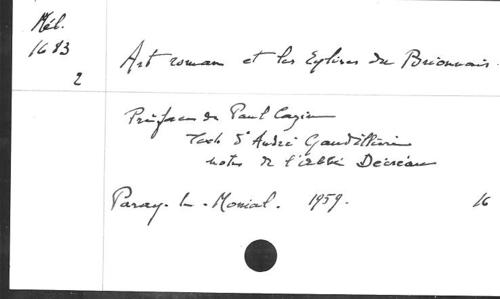 Mél.
1683
2
Art roman et les Eglises du Brionnais.
Préface de Paul Cazin
Texte d'André Gaudillière
notes de l'abbé
Paray-le-Monial. 1959. 16